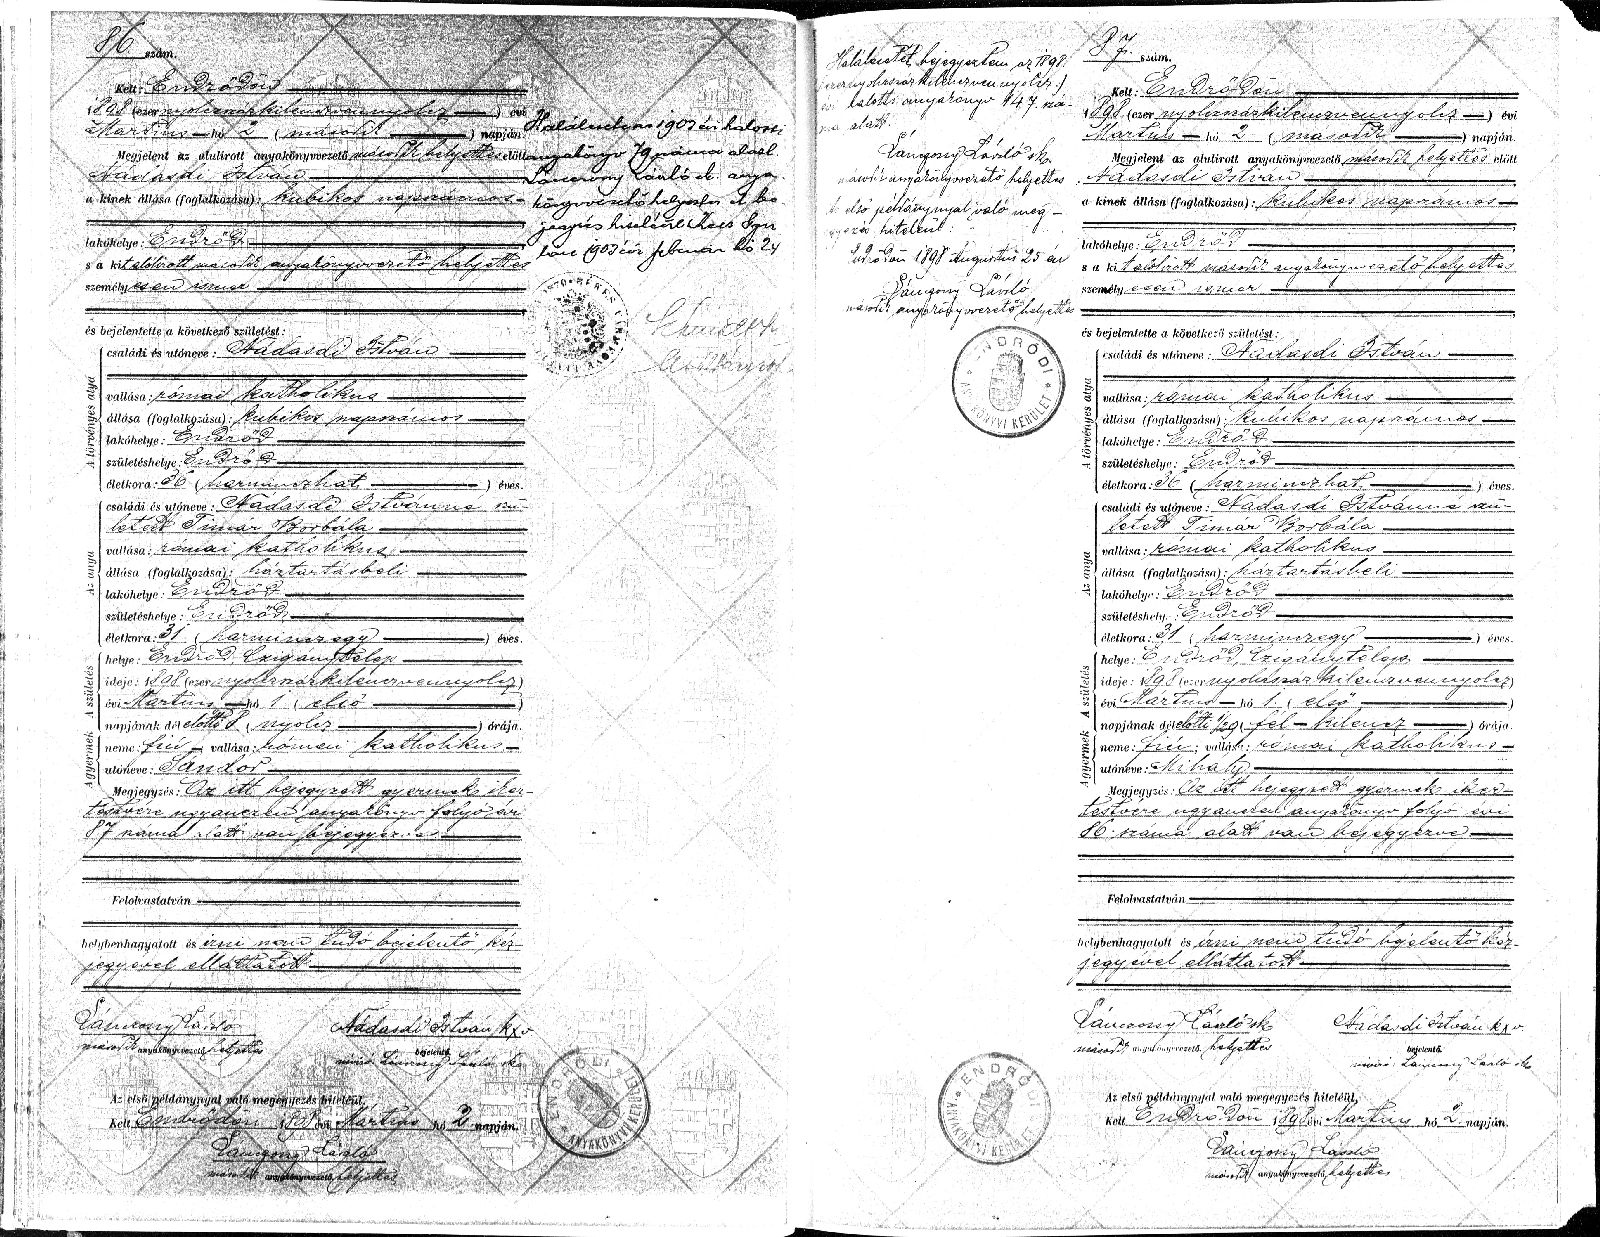 86 szám.
Kelt: Endrődön
1898 (ezernyolczszázkilenczvennyolcz) évi
Martius hó 2 (második) napján.
Megjelent az alulirott anyakönyvvezető második helyettes előtt
Nádasdi István
a kinek állása (foglalkozása): kubikos napszámos
lakóhelye: Endrőd
s a kit alólirott második anyakönyvvezető helyettes
személyesen ismer
és bejelentette a következő születést:
A törvényes atya
családi és utóneve: Nádasdi István
vallása: római katholikus
állása (foglalkozása): kubikos napszámos
lakóhelye: Endrőd
születéshelye: Endrőd
életkora: 36 (harminczhat) éves.
Az anya
családi és utóneve: Nádasdi Istvánné szü-
letett Timár Borbála
vallása: római katholikus
állása (foglalkozása): háztartásbeli
lakóhelye: Endrőd
születéshelye: Endrőd
életkora: 31 (harminczegy) éves.
A születés
helye: Endrőd, Czigánytelep
ideje: 1898 (ezernyolczszázkilenczvennyolcz)
évi Martius hó 1 (első)
napjának délelőtti 8 (nyolcz) órája.
A gyermek
neme: fiú vallása: római katholikus
utóneve: Sándor
Megjegyzés: Az itt bejegyzett gyermek iker-
testvére ugyanezen anyakönyv folyó évi
87 száma alatt van bejegyezve
Felolvastatván
helybenhagyatott és irni nem tudó bejelentő kéz-
jegyével elláttatott
Lánczony László
második anyakönyvvezető helyettes
Nádasdi István kxv
bejelentő.
Lánczony László sk
Az első példánynyal való megegyezés hiteléül.
Kelt Endrődön 1898 évi Martius hó 2 napján.
Lánczony László
második anyakönyvvezető helyettes
ENDRŐDI ANYAKÖNYVI KERÜLET
1903 évi halotti
anyakönyv 79 száma alatt.
Lánczony László sk. anya-
könyvvezető helyettes. A be-
jegyzés hiteléül
1903 évi február hó 24
Halálesetét bejegyeztem az 1898
(ezernyolczszázkilenczvennyolcz)
évi halotti anyakönyv 147 szá-
ma alatt.
Lánczony László sk.
másod anyakönyvvezető helyettes
Az első példánynyal való meg-
egyezés hiteléül:
Endrődön 1898 Augusztus 25 én
Lánczony László
másod. anyakönyvvezető helyettes
ENDRŐDI ANYAKÖNYVI KERÜLET
87. szám.
Kelt: Endrődön
1898 (ezernyolczszázkilenczvennyolcz) évi
Martius hó 2 (második) napján.
Megjelent az alulirott anyakönyvvezető második helyettes előtt
Nádasdi István
a kinek állása (foglalkozása): kubikos napszámos
lakóhelye: Endrőd
s a kit alólirott második anyakönyvvezető helyettes
személyesen ismer
és bejelentette a következő születést:
A törvényes atya
családi és utóneve: Nádasdi István
vallása: római katholikus
állása (foglalkozása): kubikos napszámos
lakóhelye: Endrőd
születéshelye: Endrőd
életkora: 36 (harminczhat) éves.
Az anya
családi és utóneve: Nádasdi Istvánné szü-
letett Timár Borbála
vallása: római katholikus
állása (foglalkozása): háztartásbeli
lakóhelye: Endrőd
születéshely: Endrőd
életkora: 31 (harminczegy) éves.
A születés
helye: Endrőd, Czigánytelep
ideje: 1898 (ezernyolczszázkilenczvennyolcz)
évi Mártius hó 1 (első)
napjának délelőtti 1/2 9 (fel kilencz) órája.
A gyermek
neme: fiú; vallása: római katholikus
utóneve: Mihály
Megjegyzés: Az itt bejegyzett gyermek iker-
testvére ugyanezen anyakönyv folyó évi
86 száma alatt van bejegyezve
Felolvastatván
helybenhagyatott és irni nem tudó bejelentő kéz-
jegyével elláttatott
Lánczony László sk
második anyakönyvvezető helyettes
Nádasdi István kxv
bejelentő.
Lánczony László sk
Az első példánynyal való megegyezés hiteléül.
Kelt Endrődön 1898 évi Martius hó 2. napján.
Lánczony László
második anyakönyvvezető helyettes
ENDRŐDI ANYAKÖNYVI KERÜLET